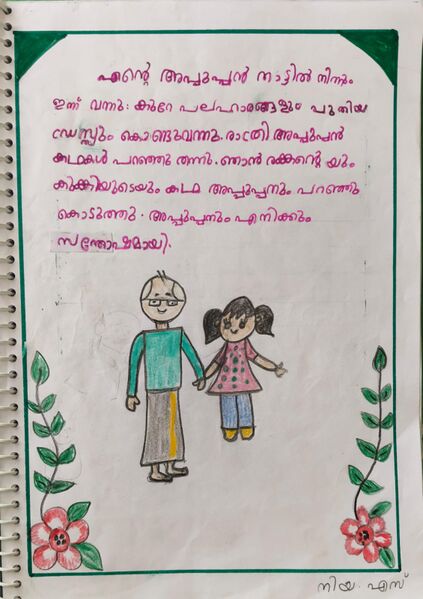 എന്റെ അപ്പൂപ്പൻ നാട്ടിൽ നിന്നും
ഇന്ന് വന്നു. കുറേ പലഹാരങ്ങളും പുതിയ
ഡ്രസ്സും കൊണ്ടുവന്നു. രാത്രി അപ്പൂപ്പൻ
കഥകൾ പറഞ്ഞു തന്നു. ഞാൻ രക്കന്റെ യും
കുക്കിയുടെയും കഥ അപ്പൂപ്പനും പറഞ്ഞു
കൊടുത്തു. അപ്പൂപ്പനും എനിക്കും
സന്തോഷമായി.
നിയ. എസ്